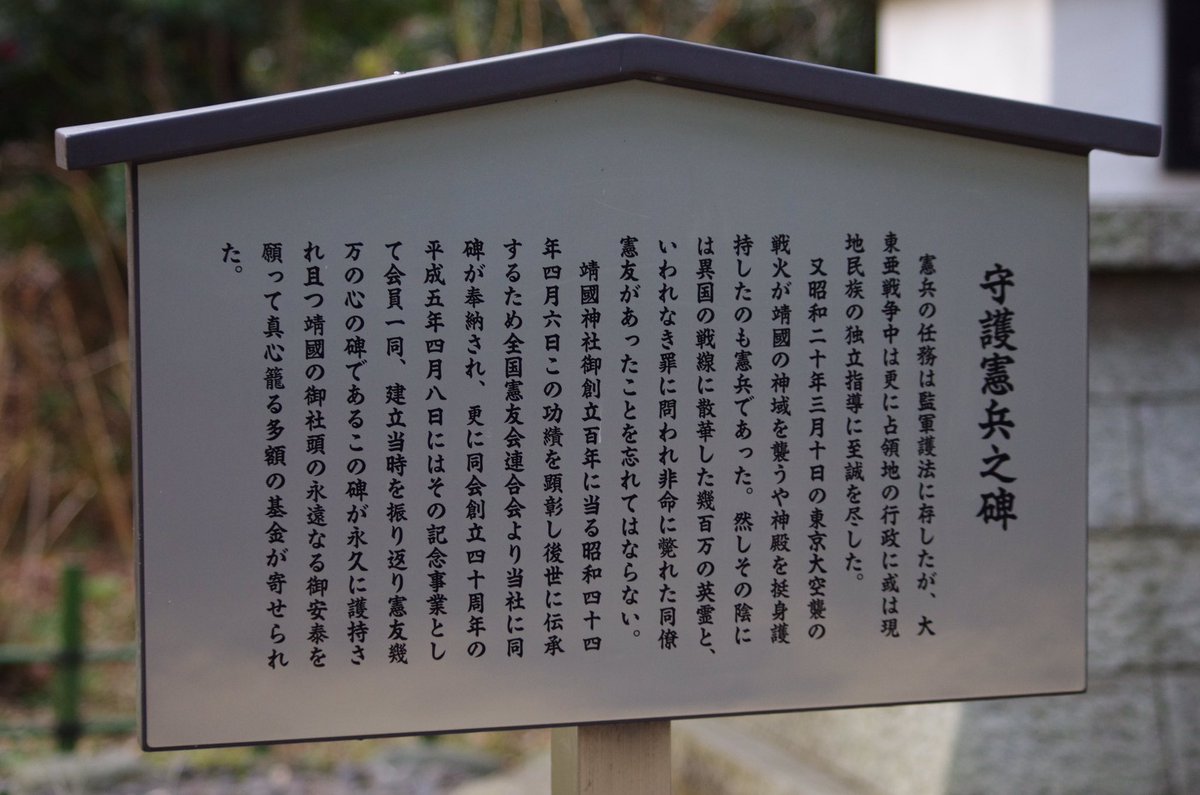 守護憲兵之碑
憲兵の任務は監軍護法に存したが、大
東亜戦争中は更に占領地の行政に或は現
地民族の独立指導に至誠を尽した。
又昭和二十年三月十日の東京大空襲の
戦火が靖國の神域を襲うや神殿を挺身護
持したのも憲兵であった。然しその陰に
は異国の戦線に散華した幾百万の英霊と、
いわれなき罪に問われ非命に斃れた同僚
憲友があったことを忘れてはならない。
靖國神社御創立百年に当る昭和四十四
年四月六日この功績を顕彰し後世に伝承
するため全国憲友会連合会より当社に同
碑が奉納され、更に同会創立四十周年の
平成五年四月八日にはその記念事業とし
て会員一同、建立当時を振り返り憲友幾
万の心の碑であるこの碑が永久に護持さ
れ且つ靖國の御社頭の永遠なる御安泰を
願って真心籠る多額の基金が寄せられ
た。